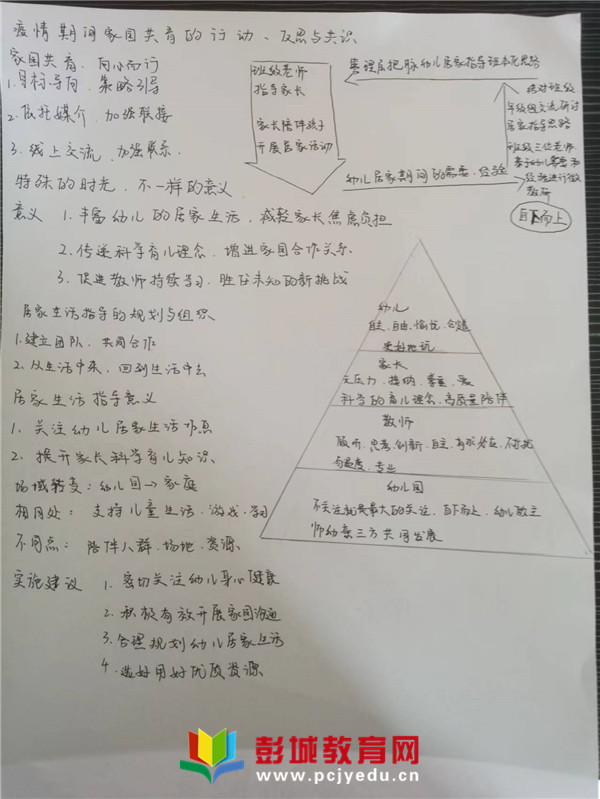 疫情期间家园共育的行动、反思与共识
家园共育、同心而行
1.目标导向,策略引导
2.依托媒介,加强联接
3.线上交流,加强联系.
特殊的时光,不一样的意义
班级老师
指导家长
家长陪伴孩子
开展居家活动
管理层把脉幼儿居家指导班本化思路
核对班级
年级组交流研讨
居家指导思路
班级三位老师
基于幼儿需要和
经验进行微
教研
自下而上
幼儿居家期间的需要、经验
意义 1.丰富幼儿的居家生活,减轻家长焦虑负担
2.传递科学育儿理念,增进家园合作关系.
3.促进教师持续学习,胜任未知的新挑战
居家生活指导的规划与组织
1.建立团队,共同合作
2.从生活中来,回到生活中去
居家生活指导意义
1.关注幼儿居家生活作息
2.提升家长科学育儿知识.
场域转变:幼儿园→家庭
相同处:支持儿童生活、游戏、学习
不同点:陪伴人群、场地、资源
实施建议 1.密切关注幼儿身心健康
2.积极有效开展家园沟通
3.合理规划幼儿居家生活
4.选好用好优质资源
幼儿
自主、自由、愉悦、合适
更好地玩
家长
无压力、接纳、尊重、爱
科学的育儿理念、高质量陪伴
教师
倾听、思考、创新、自主、
有温度、专业
幼儿园
不关注就是最大的关注,自下而上、幼儿教主
师幼家三方共同发展
彭城教育网
www.pcjyedu.cn